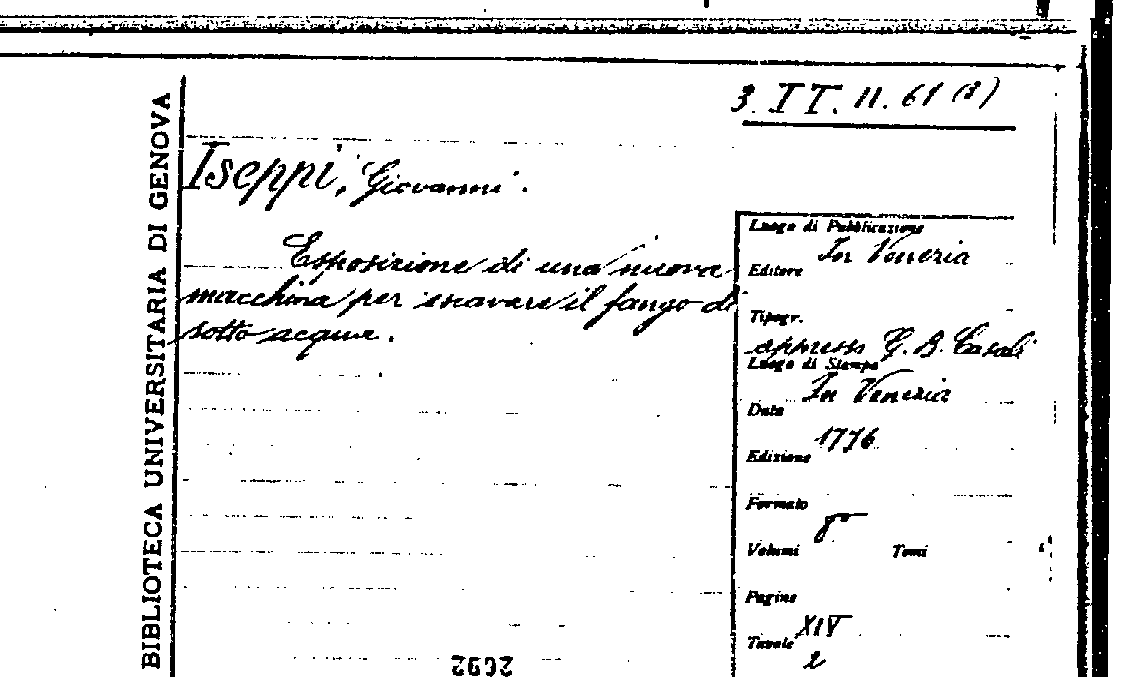 3. I T. II. 61 (3)
BIBLIOTECA UNIVERSITARIA DI GENOVA
Iseppi, Giovanni.
Esposizione di una nuova
macchina per escavare il fango di
sotto acqua.
Luogo di Pubblicazione
In Venezia
Editore
Tipogr.
appresso G. B. Casali
Luogo di Stampa
In Venezia
Data
1776
Edizione
Formato
8°
Volumi Tomi
Pagine
XIV
Tavole
2
2692